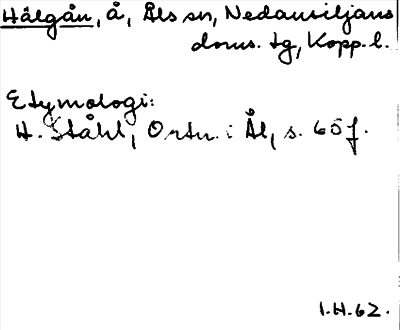 Hälgån, å, Åls sn, Nedansiljans
doms. tg, Kopp. l.
Etymologi:
H. Ståhl, Ortn. i Ål, s. 65 f.
I.H.62.